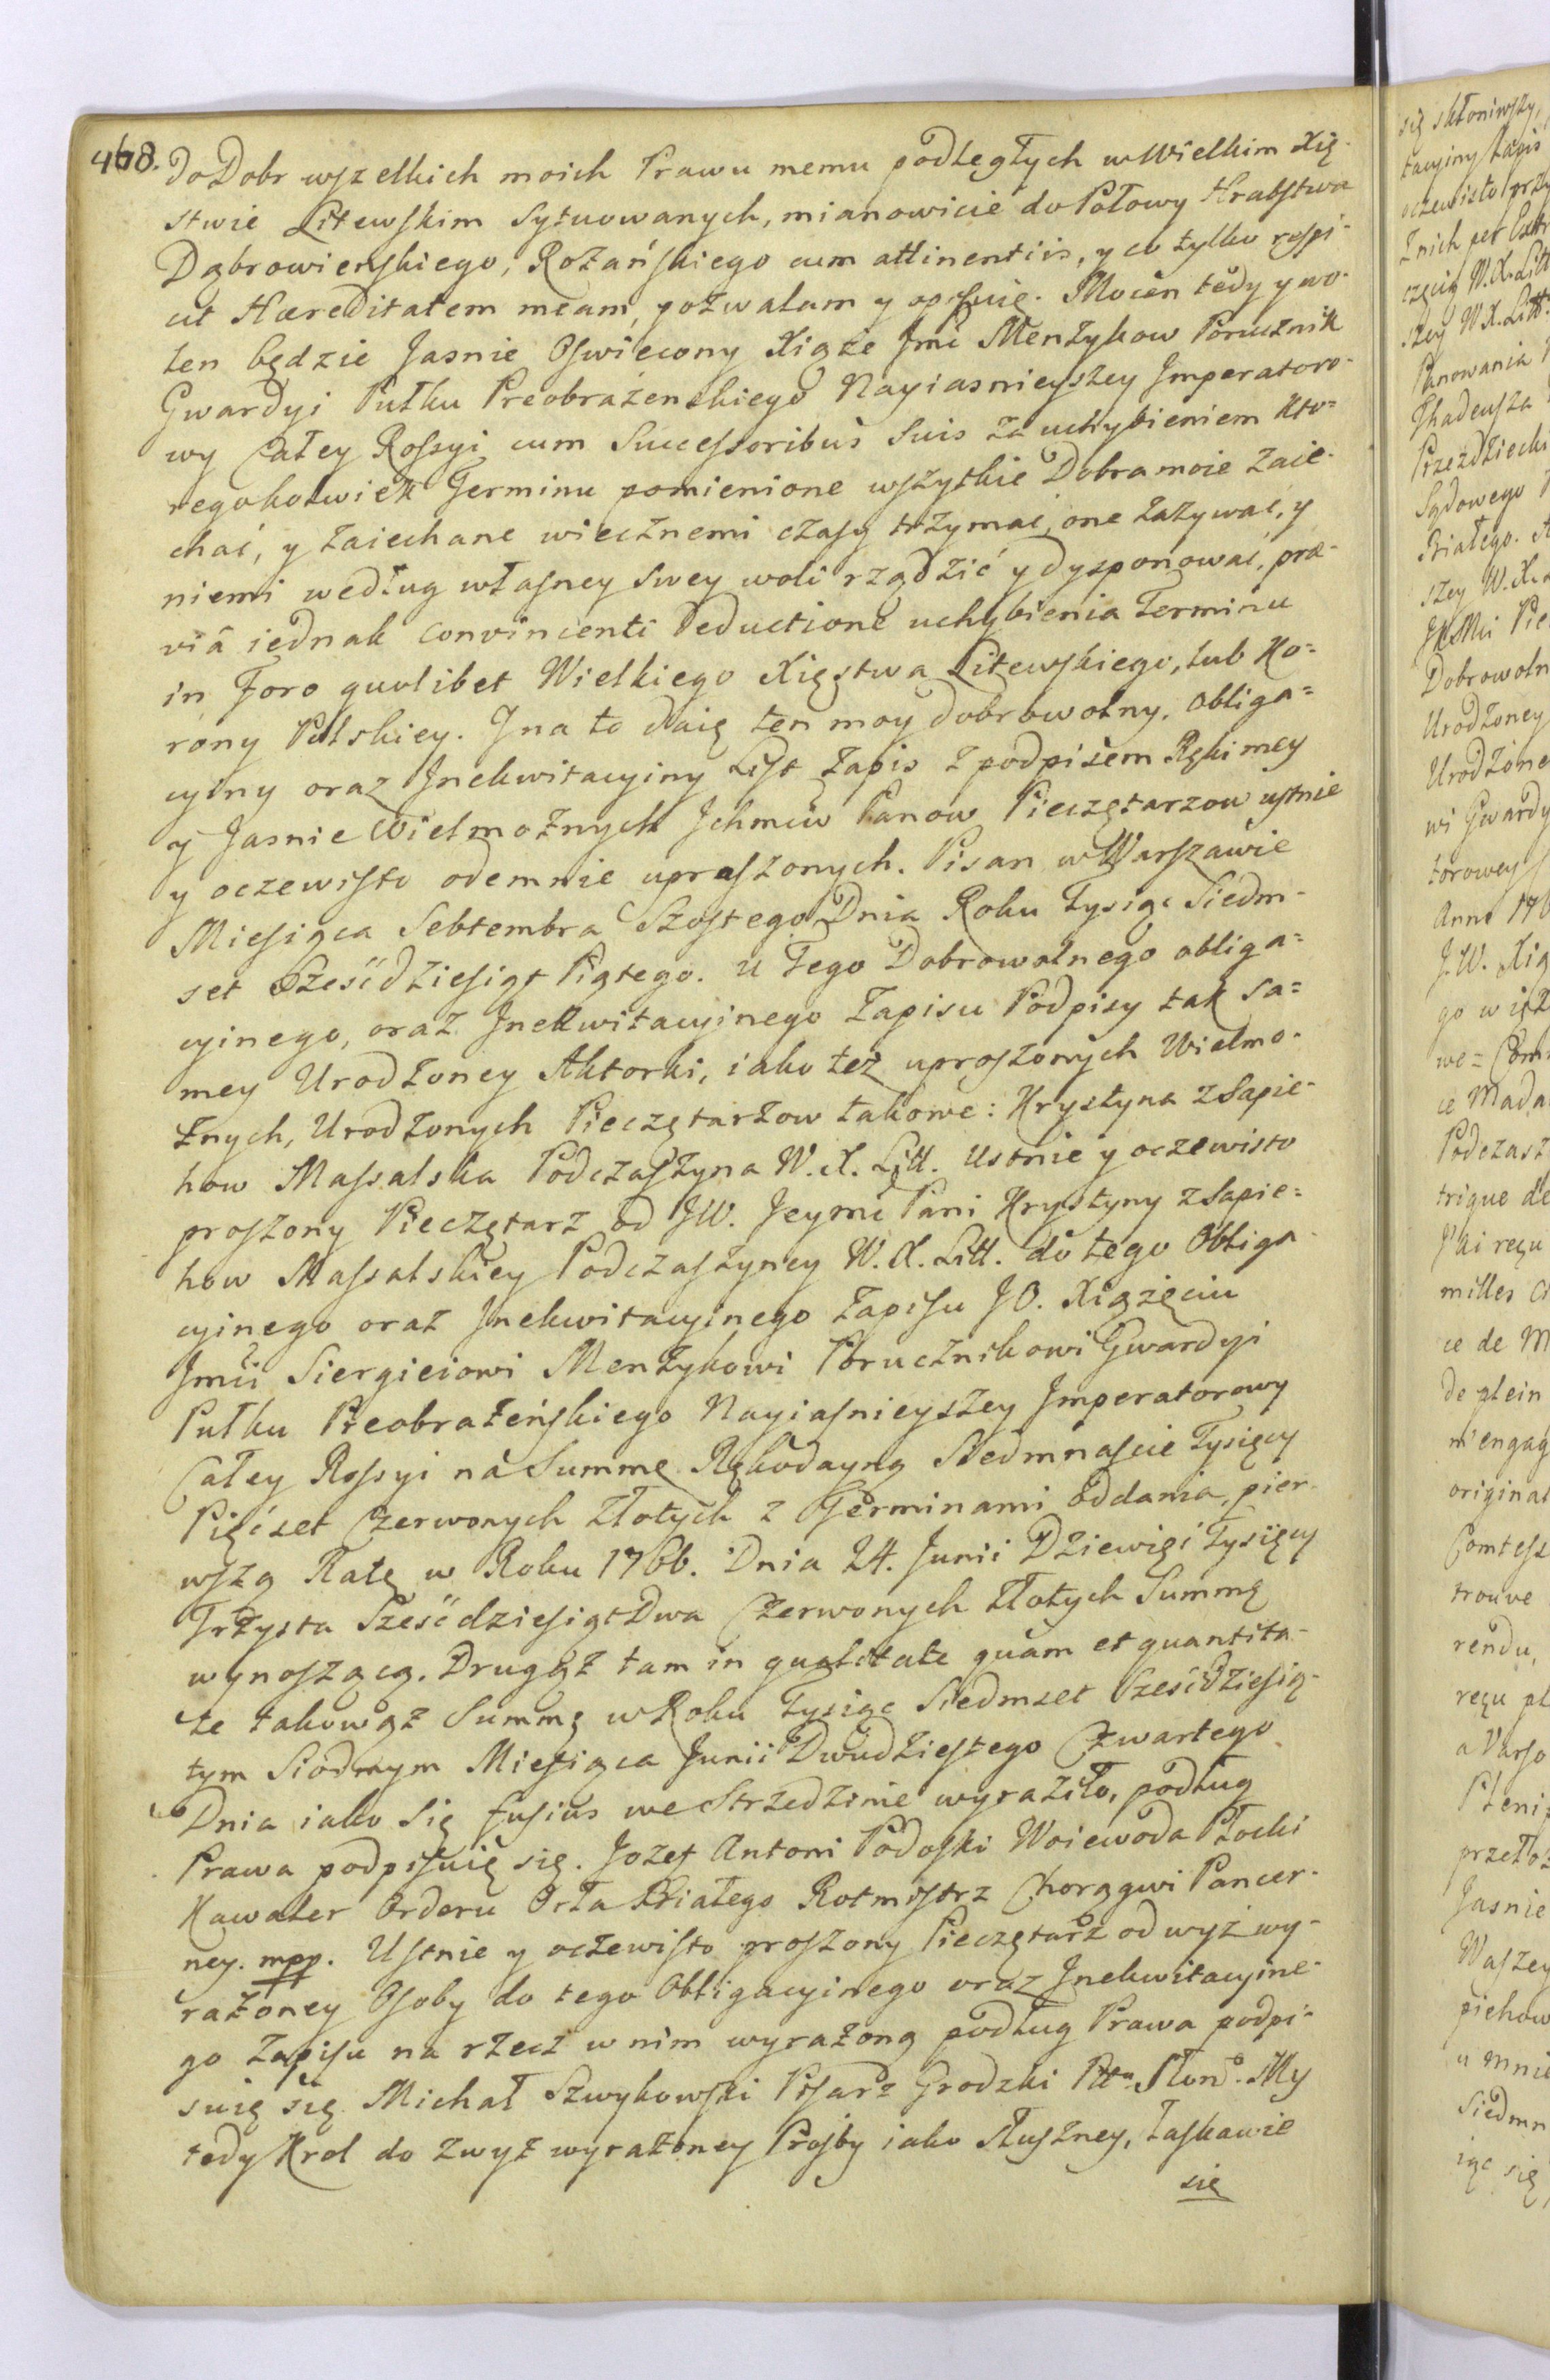 468.
Do Dobr wszelkich moich Prawu memu podległych w Wielkim Xię-
stwie Litewskim Sytuowanych, mianowicie do Połowy Hrabstwa
Dąbrowieńskiego, Rożańskiego cum attinentiis, y co tylko
ut Hæreditatem meam, pozwalam y opisuię. Mocen tedy y wo-
len będzie Jasnie Oswiecony Xiąże Jmć Menżykow Porucznik
Gwardyi Pułku Preobrażenskiego Nayiasnieyszey Jmperatoro-
wy Całey Rossyi cum Successoribus Suis za uchybieniem kto=
regokolwiek Terminu pomienione wszytkie Dobra moie zaie-
chać, y zaiechane wiecznemi czasy trzymać, one zażywać, y
niemi według własney swey woli rządzić y dysponować, præ-
viâ iednak convincenti Deductione uchybienia Terminu
in Foro quolibet Wielkiego Xięstwa Litewskiego, lub Ko=
rony Polskiey. Jna to daię ten moy dobrowolny, obliga=
cyiny oraz Jnekwitacyiny List Zapis z podpisem Ręki mey
y Jasnie Wielmożnych Jchmciw Panow Pieczętarzow ustnie
y oczewisto odemnie uproszonych. Pisan w Warszawie
Miesiąca Sebtembra Szostego Dnia Roku Tysiąc Siedm-
set Sześćdziesiąt Piątego. U Tego Dobrowolnego obliga=
cyinego, oraz Jnekwitacyinego Zapisu Podpisy tak sa=
mey Urodzoney Aktorki, iako też uproszonych Wielmo-
żnych, Urodzonych Pieczętarzow takowe: Krystyna z Sapie-
how Massalska Podczaszyna W. X. Litt. Ustnie y oczewisto
proszony Pieczętarz od JW. Jeymć Pani Krystyny z Sapie=
how Massalskiey Podczaszyney W. X. Litt. do tego Obliga-
cyinego oraz Jnekwitacyinego Zapisu JO. Xiążęciu
Jmci Siergieiowi Menżykowi Porucznikowi Gwardyi
Pułku Preobrażeńskiego Nayiasnieyszey Jmperatorowy
Całey Rossyi na Summę Rękodayną Siedmnaście Tysięcy
Pięćset Czerwonych Złotych z Terminami oddania, pier-
wszą Ratę w Roku 1766. Dnia 24. Junii Dziewięć Tysięcy
Trzysta Sześćdziesiąt Dwa Czerwonych Złotych Summę
wynoszącą. Drugąż tam in qualitate quam et quantita-
te takowąż Summę w Roku Tysiąc Siedmset Sześćdziesią-
tym Siodmym Miesiąca Junii Dwudziestego Czwartego
Dnia iako się fusius we Strzedzinie wyraziło, podług
Prawa podpisuię się. Jozef Antoni Podoski Woiewoda Płocki
Kawaler Orderu Orła Białego Rotmistrz Chorągwi Pancer-
ney. mpp. Ustnie y oczewisto proszony Pieczętarz od wyż wy-
rażoney Osoby do tego Obligacyinego oraz Jnekwitacyine-
go Zapisu na rzecz w nim wyrażoną podług Prawa podpi-
suię się Michał Szwykowski Pisarz Grodzki Pttu Słon°. My
tedy Krol do zwyż wyrażoney Prośby iako słuszney, łaskawie
się